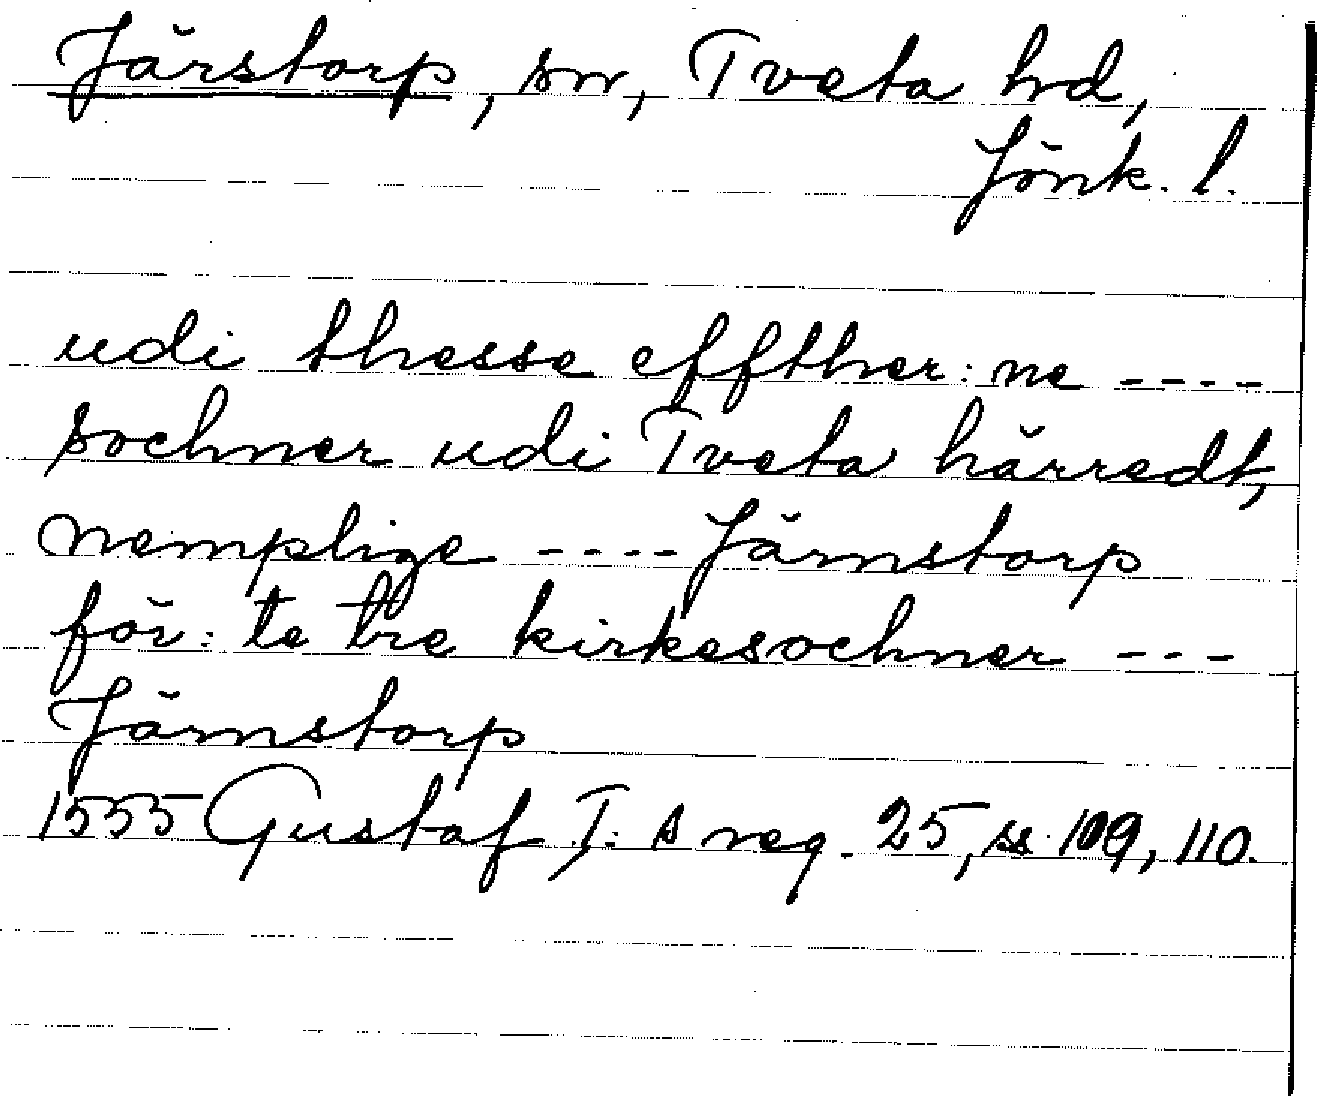 Järstorp, sn, Tveta hd,
Jönk. l.
udi thesse effther: ne ----
sochner udi Tveta härredt,
nemplige ---- Järnstorp
för: te tre kirkesochner ---
Järnstorp
1555 Gustaf I: s reg. 25, ss. 109, 110.